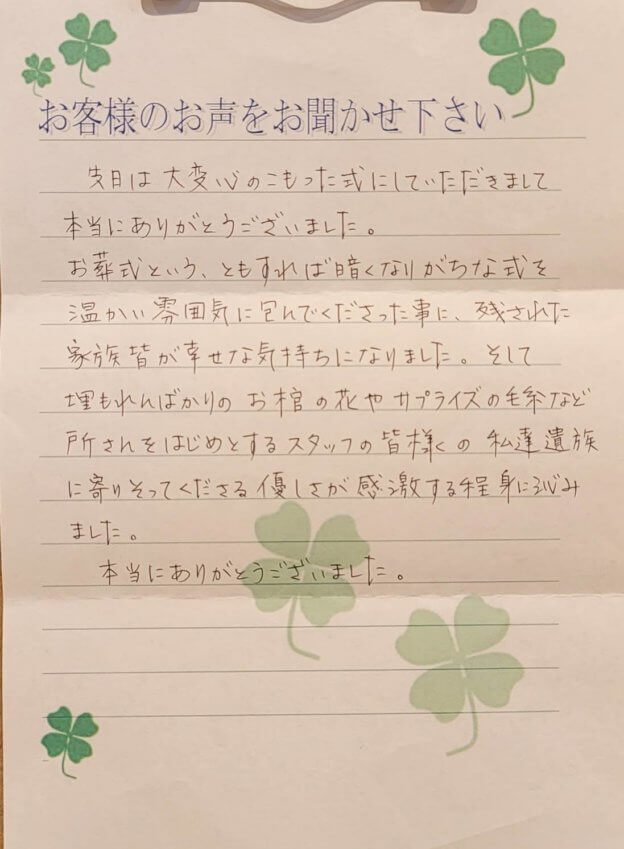 お客様のお声をお聞かせ下さい
先日は大変心のこもった式にしていただきまして
本当にありがとうございました。
お葬式という、ともすれば暗くなりがちな式を
温かい雰囲気に包んでくださった事に、残された
家族皆が幸せな気持ちになりました。そして
埋もれんばかりのお棺の花やサプライズの毛糸など
所さんをはじめとするスタッフの皆様くの私達遺族
に寄りそってくださる優しさが感激する程身に沁み
ました。
本当にありがとうございました。